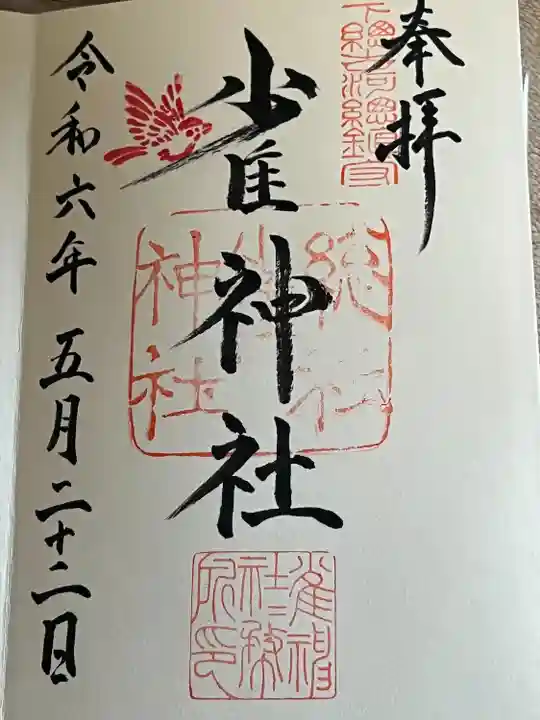 奉拝
下総古河総鎮守
雀神社
総社
雀
神社
雀神社社務所印
令和六年五月二十二日